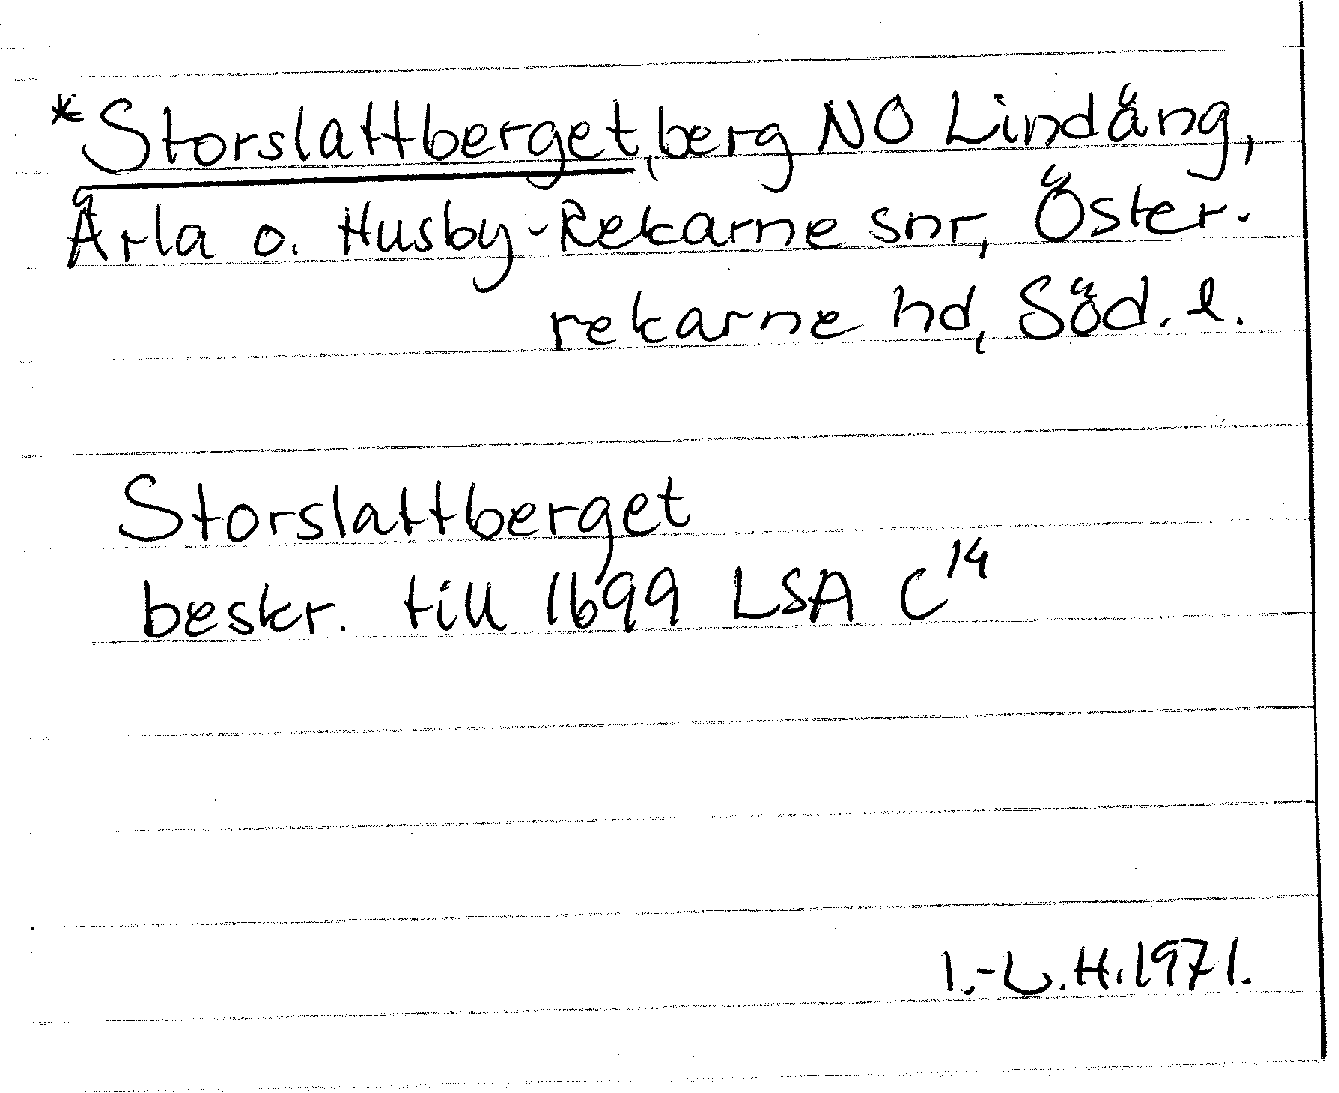 *Storslattberget, berg NO Lindäng,
Ärla o. Husby-Rekarne snr, Öster-
rekarne hd, Söd. l.
Storslattberget
beskr. till 1699 LSA C¹⁴
I.-L.H. 1971.